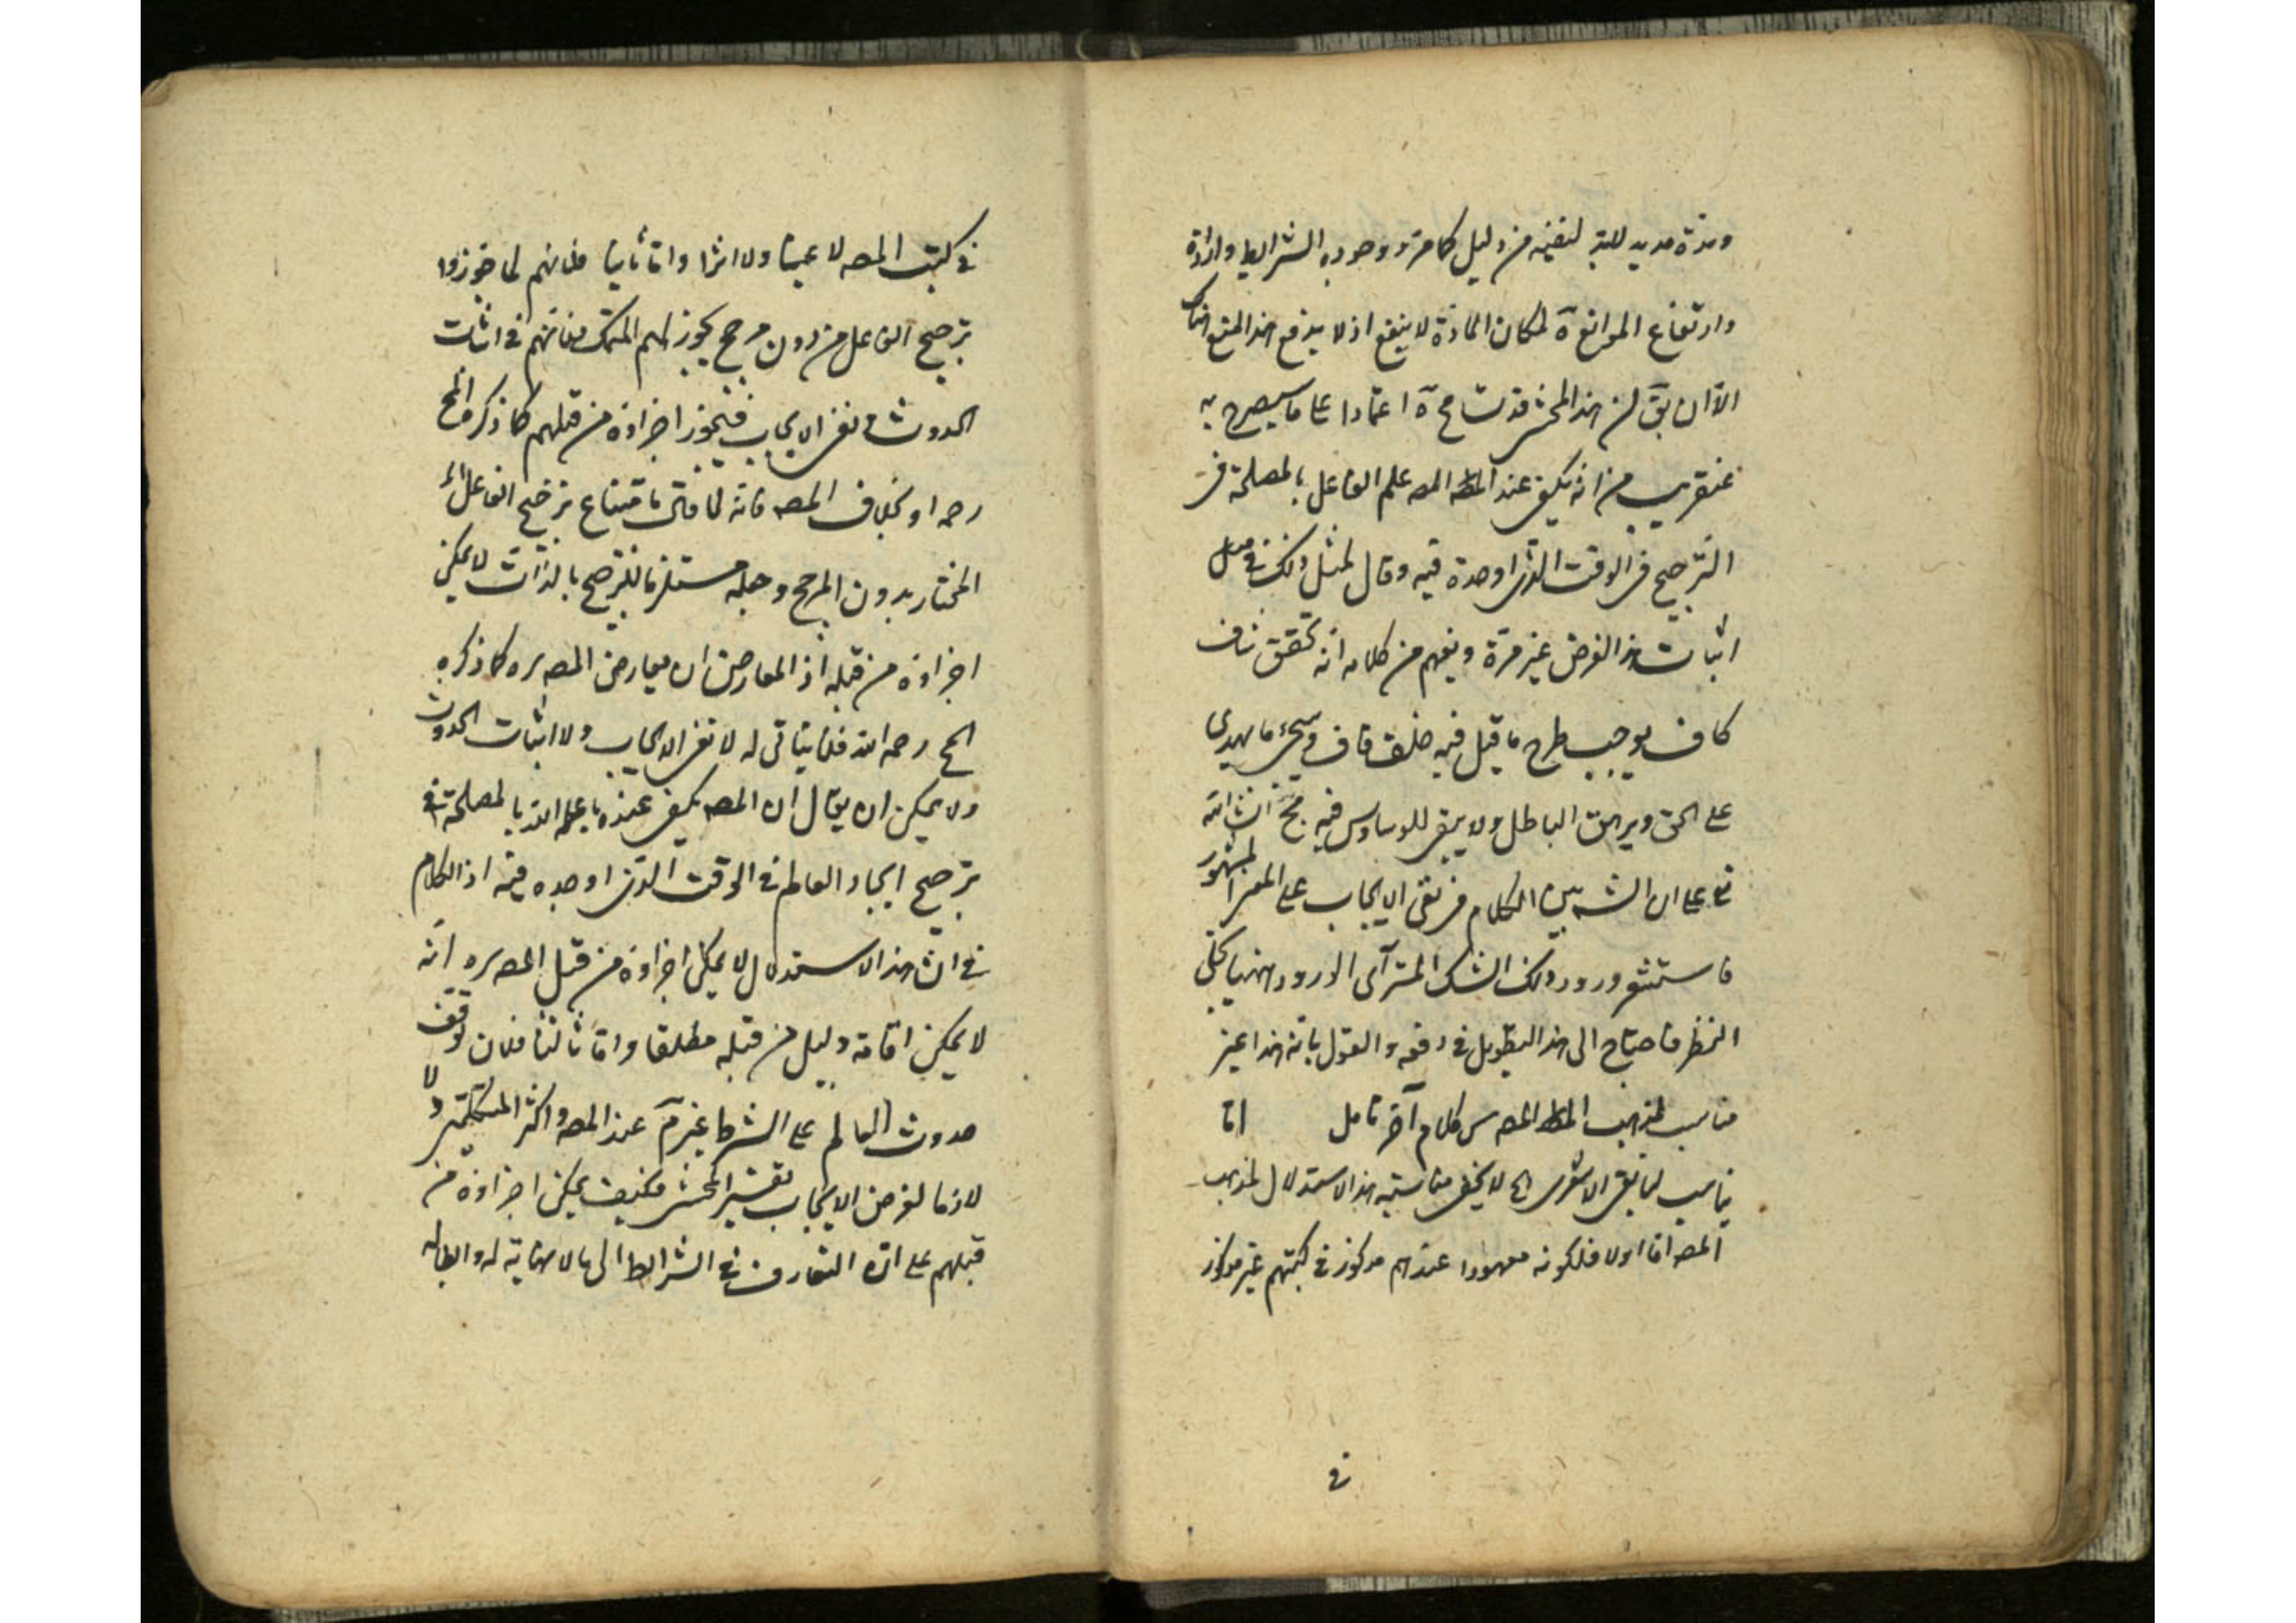 ومدة مديد للبتة لنفيه من دليل كما مر ووجود الشرايط وارادة
وارتفاع الموانع لمكان المادة لا ينفع اذ لا يدفع هذا المنع هناك
الا ان يق ان هذا المحشى قد تسامح اعتمادا على ما سيصرح به
عنقريب من انه يكفى عند المصه علم الفاعل بالمصلحة فى
الترجيح فى الوقت الذى اوجده فيه وقال لمثل ذلك فى
اثبات هذا الغرض غير مرة ويفهم من كلامه انه تحقق شاف
كاف يوجب طرح ما قيل فيه وسيجىء ما يهدى
على الحق ويرهق الباطل ولا يبقى للوساوس فيه انشاء الله
تع على ان الشه بين الكلام فى نفى الايجاب على المعنى المشهور
فاستشعر ورود ذلك الشك المترآى الورود ههنا بحلى
النظر فاحتاج الى هذا التطويل فى دفعه والقول بانه هذا غير
مناسب لمذهب المصه كلام آخر تامل اما
يناسب لمايق الاشعرى الخ لا يخفى مناسبته هذا الاستدلال لمذهب
المصه اما اولا فلكونه معهودا عندهم مركوز فى كتبهم غير مركوز
فى
فى كتب المصه لا عينا ولا اثرا واما ثانيا فلانهم لما جوزوا
ترجيح الفاعل من دون مرجح يجوز لهم التمسك فى اثبات
الحدوث ونفى الايجاب فيجوز اجراؤه من قبلهم كما ذكره المح
رحمه الله بخلاف المصه فانه لما قال بامتناع ترجيح الفاعل
المختار بدون المرجح وجعله مستلزما للترجيح بالذات لا يمكن
اجراؤه من قبله اذ المعارض ان يعارض المصه ره كما ذكره
المح رحمه الله فلا يتاتى له لا نفى الايجاب ولا اثبات الحدوث
ولا يمكن ان يقال ان المصه يكفى عنده علم الله بالمصلحة فى
ترجيح ايجاد العالم فى الوقت الذى اوجده فيه اذ الكلام
فى ان هذا الاستدلال لا يمكن اجراؤه من قبل المصه ره انه
لا يمكن اقامة دليل من قبله مطلقا واما ثالثا فلان توقف
حدوث العالم على الشرط غير م عند المصه واكثر المتكلمين ولا
لازما لفرض الايجاب بتفسير المحشى فكيف يمكن اجراؤه من
قبلهم على ان التعارف فى الشرايط الى ما لا نهاية له وابطاله